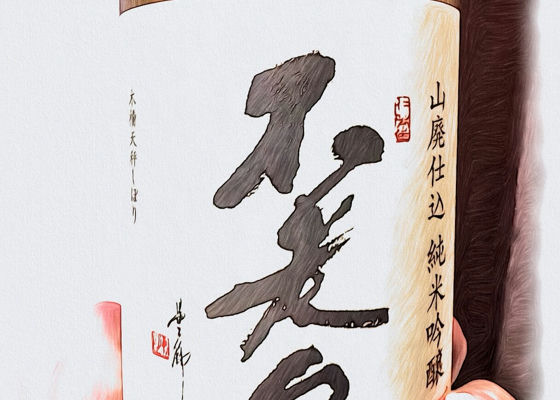 山廃仕込 純米吟醸
不老
木槽天秤しぼり